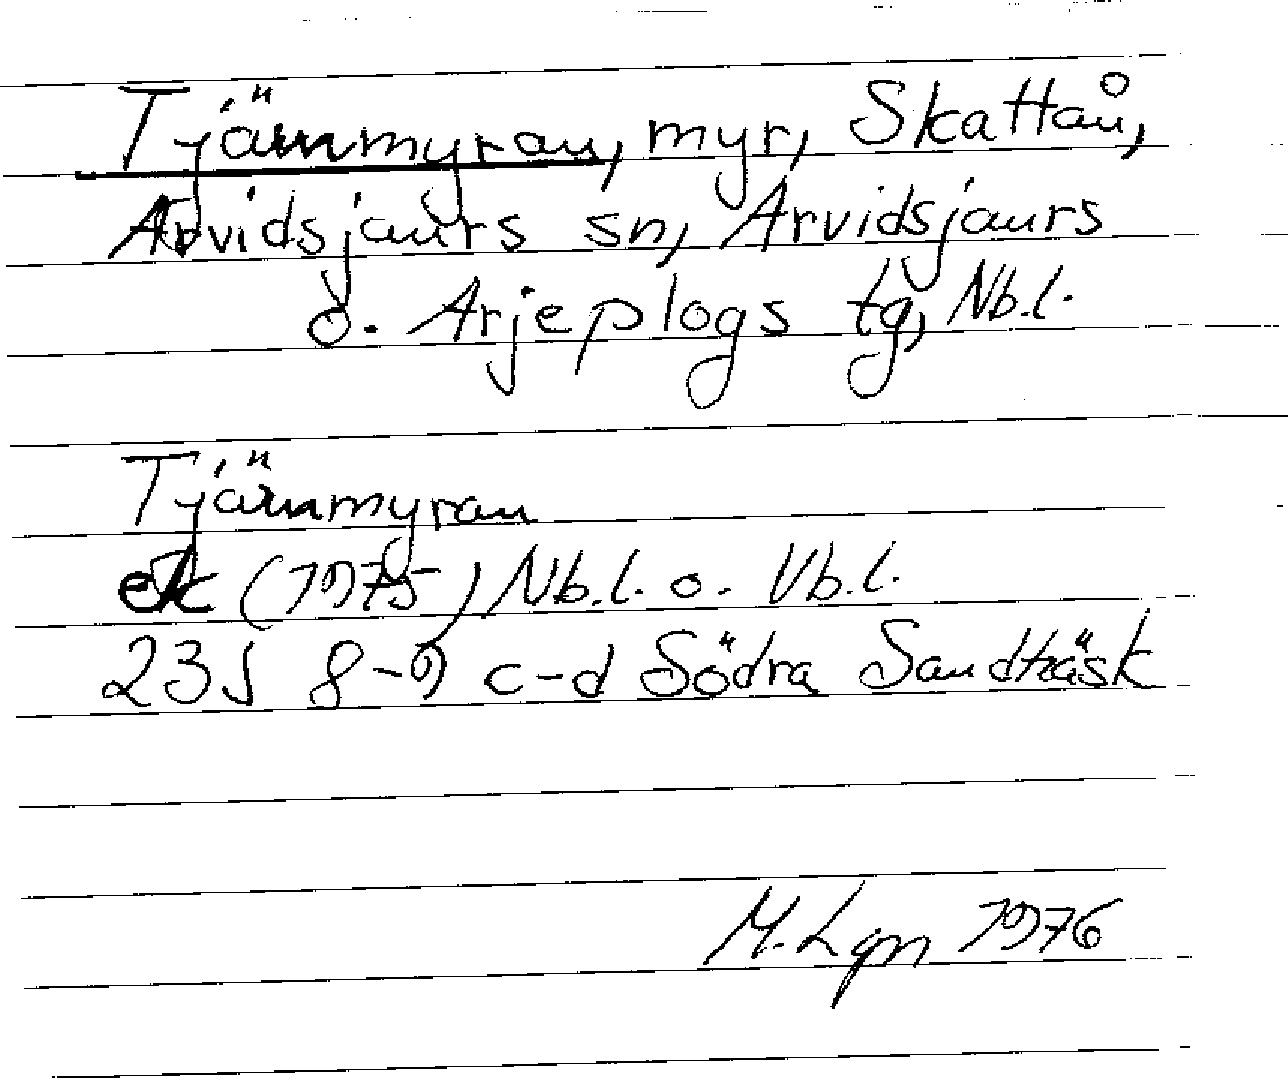 Tjärnmyran, myr, Skattån,
Arvidsjaurs sn, Arvidsjaurs
o. Arjeplogs tg, Nb.l.
Tjärnmyran
ek (1975) Nb.l. o. Vb.l.
23J 8-9 c-d Södra Sandträsk
M. Lgn 1976